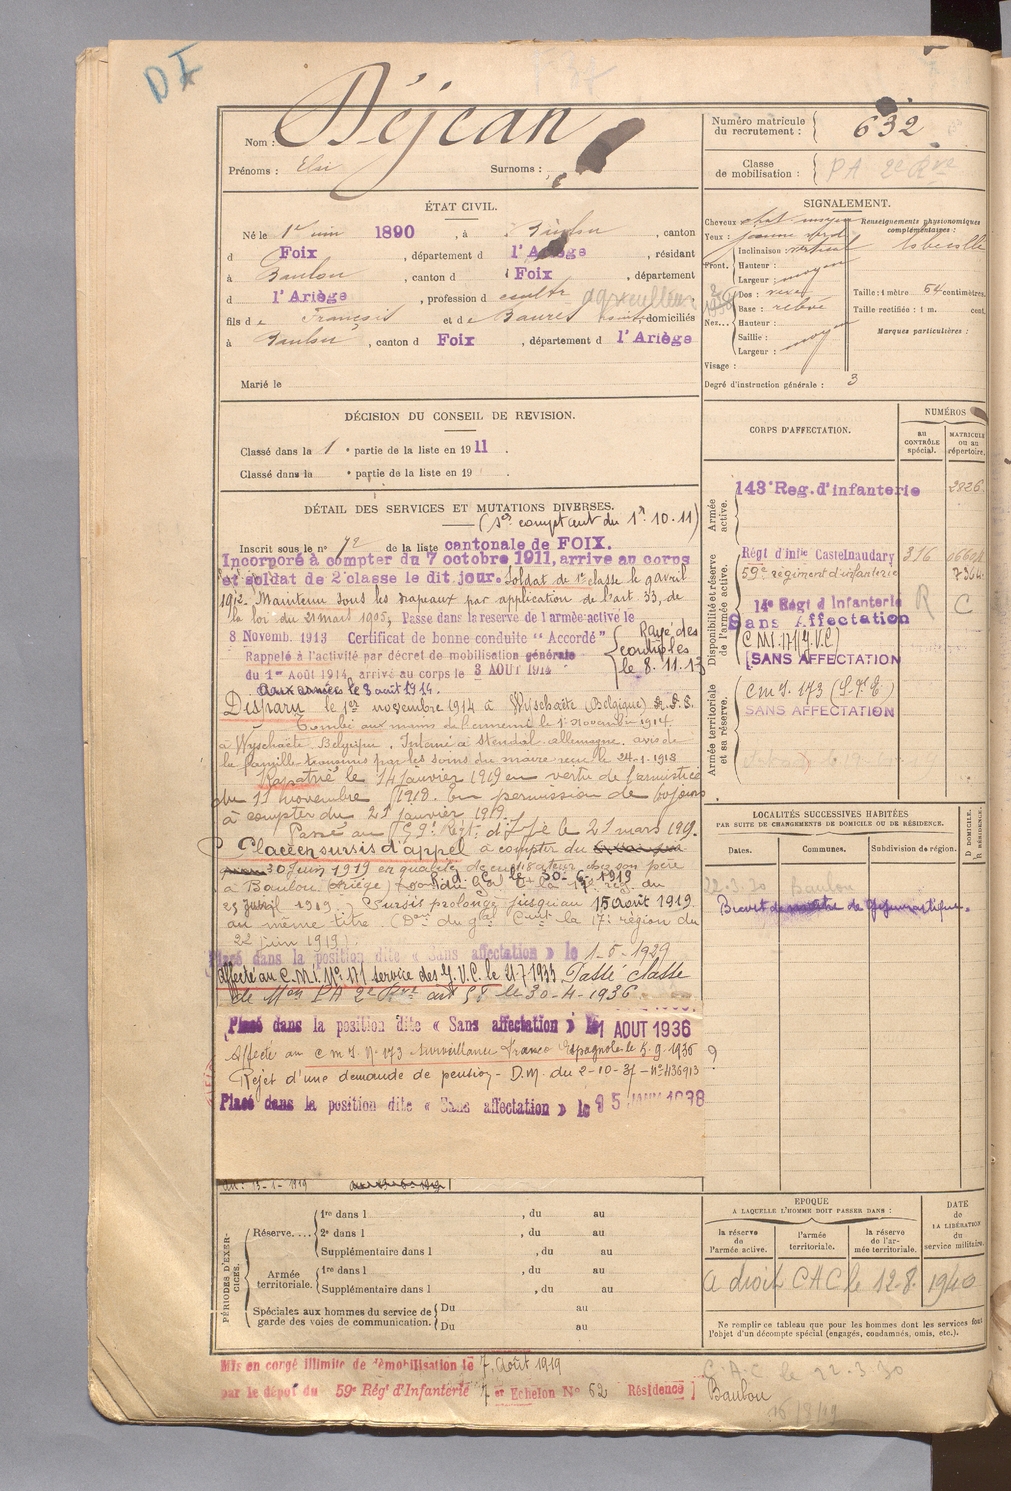 DI
Nom : Déjean
Prénoms : Surnoms :
Numéro matricule du recrutement : 632
Classe de mobilisation : PA 2e Rve
ÉTAT CIVIL.
Né le 1er juin 1890, à , canton
d Foix, département d l'Ariège, résidant
à Baulou, canton d Foix, département
d l'Ariège, profession d cultr agriculteur
fils de François et de Baures , domiciliés
à Baulou, canton d Foix, département d l'Ariège
Marié le
SIGNALEMENT.
Cheveux chat. moyen
Yeux : jaune verd.
Front. Inclinaison : vertical
Hauteur :
Largeur : moyen
Nez... Dos :
Base : relevé
Hauteur :
Saillie :
Largeur : moyen
Visage :
Renseignements physionomiques complémentaires :
Taille : 1 mètre 64 centimètres.
Taille rectifiée : 1 m. cent.
Marques particulières :
Degré d'instruction générale : 3
DÉCISION DU CONSEIL DE REVISION.
Classé dans la 1e partie de la liste en 1911.
Classé dans la e partie de la liste en 19 .
DÉTAIL DES SERVICES ET MUTATIONS DIVERSES.
(Ses comptant du 1er 10-11)
Inscrit sous le n° 72 de la liste cantonale de FOIX.
Incorporé à compter du 7 octobre 1911, arrive au corps
et soldat de 2e classe le dit jour. Soldat de 1e classe le 9 avril
1912. Maintenu sous les drapeaux par application de l'art 33, de
la loi du 21 mars 1905, Passe dans la reserve de l'armée active le
8 Novemb. 1913 Certificat de bonne conduite "Accordé"
Rayé des contrôles le 8.11.13
Rappelé à l'activité par décret de mobilisation générale
du 1er Août 1914, arrivé au corps le 3 AOUT 1914
Aux armées le 8 août 1914.
Disparu le 1er novembre 1914 à Wyschaëte (Belgique)
Tombé aux mains de l'ennemi le 1er Novembre 1914
à Wyschaëte Belgique. Interné à Stendal allemagne. avis de
la famille transmis par les soins du maire reçu le 24-1-1918
Rapatrié le 14 Janvier 1919 en vertu de l'armistice
du 11 novembre 1918. En permission de jours
à compter du 21 janvier 1919.
Passé au 59e Régt d'Ifie le 21 mars 1919.
Placé en sursis d'appel à compter du
30 Juin 1919 en qualité de cultivateur chez son père
d. c. le 30-6-1919
à Baulou (Ariège) la 17e rég. du
1919.) Sursis prolongé jusqu'au 15 août 1919
au même titre. (Don du gal Cmt la 17e région du
22 juin 1919).
Placé dans la position dite « Sans affectation » le 1-6-1929
Affecté au C.M.I. N° 171 service des G.V.C. le 21-7-1933 Passé classe
de Mon PA 2e Rve art 58 le 30-4-1936.
Placé dans la position dite « Sans affectation » le 1 AOUT 1936
Affecté au C M I. N° 173 surveillance Franco Espagnole le 5.9.1936
Rejet d'une demande de pension - D.M. du 2-10-37 - N° 436913
Placé dans la position dite « Sans affectation » le 5 JANV 1938
CORPS D'AFFECTATION.
NUMÉROS
au CONTRÔLE spécial.
MATRICULE ou au répertoire.
Armée active.
143e Reg. d'infanterie 2826
Disponibilité et réserve de l'armée active.
Régt d'infie Castelnaudary 316
59e régiment d'infanterie
14e Régt d'Infanterie R C
Sans Affectation
(C M I. 171 (G.V.C)
SANS AFFECTATION
Armée territoriale et sa réserve.
C M I. 173
SANS AFFECTATION
LOCALITÉS SUCCESSIVES HABITÉES
PAR SUITE DE CHANGEMENTS DE DOMICILE OU DE RÉSIDENCE.
Dates. Communes. Subdivision de région. D. DOMICILE. R. RÉSIDENCE.
22-3-30 Baulou
Brevet de de Gymnastique.
PÉRIODES D'EXERCICES.
Réserve.... 1re dans l , du au
2e dans l , du au
Supplémentaire dans l , du au
Armée territoriale. 1re dans l , du au
Supplémentaire dans l , du au
Spéciales aux hommes du service de garde des voies de communication. Du au
Du au
EPOQUE
A LAQUELLE L'HOMME DOIT PASSER DANS :
la réserve de l'armée active.
l'armée territoriale.
la réserve de l'armée territoriale.
DATE de LA LIBÉRATION du service militaire.
a droit CAC le 12-8- 1940
Ne remplir ce tableau que pour les hommes dont les services font
l'objet d'un décompte spécial (engagés, condamnés, omis, etc.).
Mis en congé illimité de démobilisation le 7 Août 1919
par le dépôt du 59e Rég' d'Infanterie 7e Echelon N° 62 Résidence Baulou
C.A.C le 22-3-30